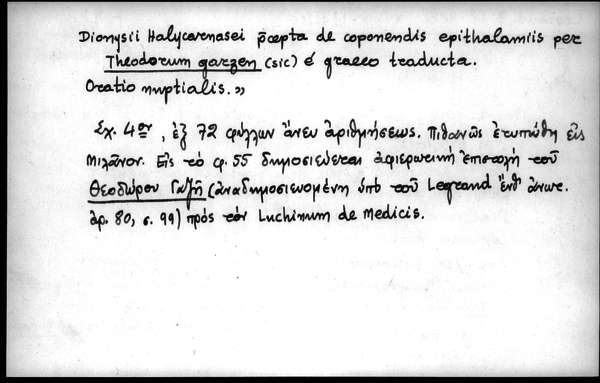 Dionysii Halycarenasei p̄cepta de coponendis epithalamiis per
Theodorum garzen (sic) é graeco traducta.
Oratio nuptialis.»
Σχ. 4ον, ἐξ 72 φύλλων ἄνευ ἀριθμήσεως. Πιθανῶς ἐτυπώθη εἰς
Μιλᾶνον. Εἰς τὸ φ. 55 δημοσιεύεται ἀφιερωτική ἐπιστολή τοῦ
Θεοδώρου Γαζῆ (ἀναδημοσιευομένη ὑπὸ τοῦ Legrand ἔνθ' ἀνωτ.
ἀρ. 80, σ. 99) πρός τόν Luchinum de Medicis.